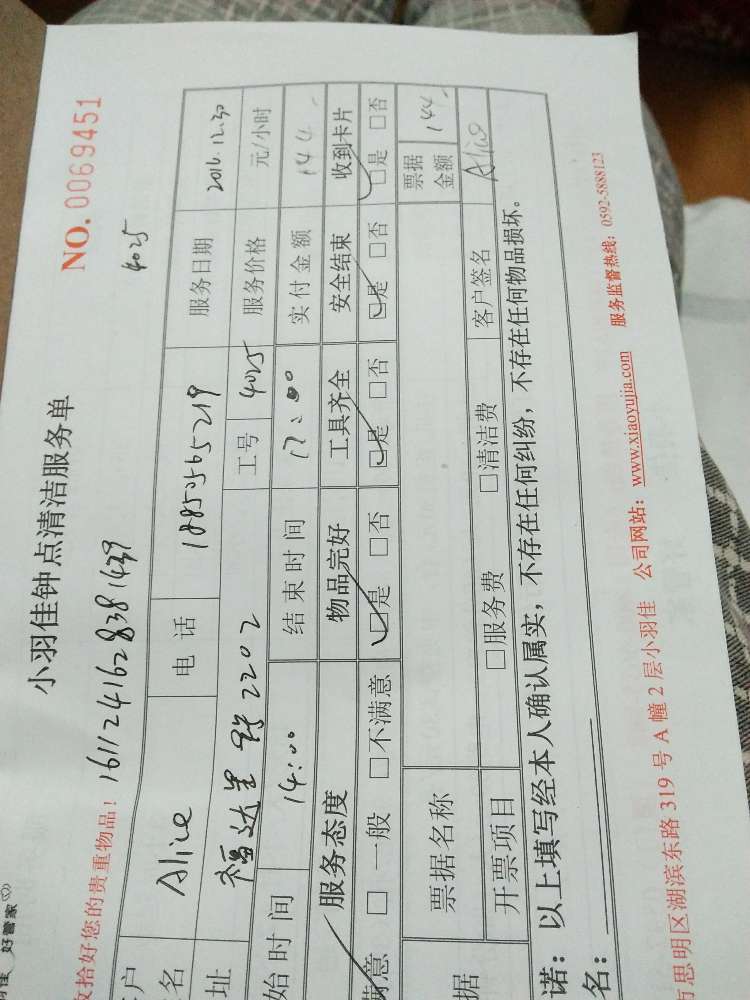 好管家
小羽佳钟点清洁服务单 NO. 0069451
收拾好您的贵重物品! 1611241628381439 4025
户名 Alice 电话 18850565219 服务日期 2016.12.30
址 福达里 2202 工号 4025 服务价格 元/小时
始时间 14:00 结束时间 17:00 实付金额 144
服务态度 物品完好 工具齐全 安全结束 收到卡片
满意 □一般 □不满意 □是 □否 □是 □否 □是 □否 □是 □否
据 票据名称 票据金额 144
开票项目 □服务费 □清洁费 客户签名 Alice
诺:以上填写经本人确认属实,不存在任何纠纷,不存在任何物品损坏。
名:
市思明区湖滨东路 319 号 A 幢 2 层小羽佳 公司网站:www.xiaoyujia.com 服务监督热线:0592-5888123